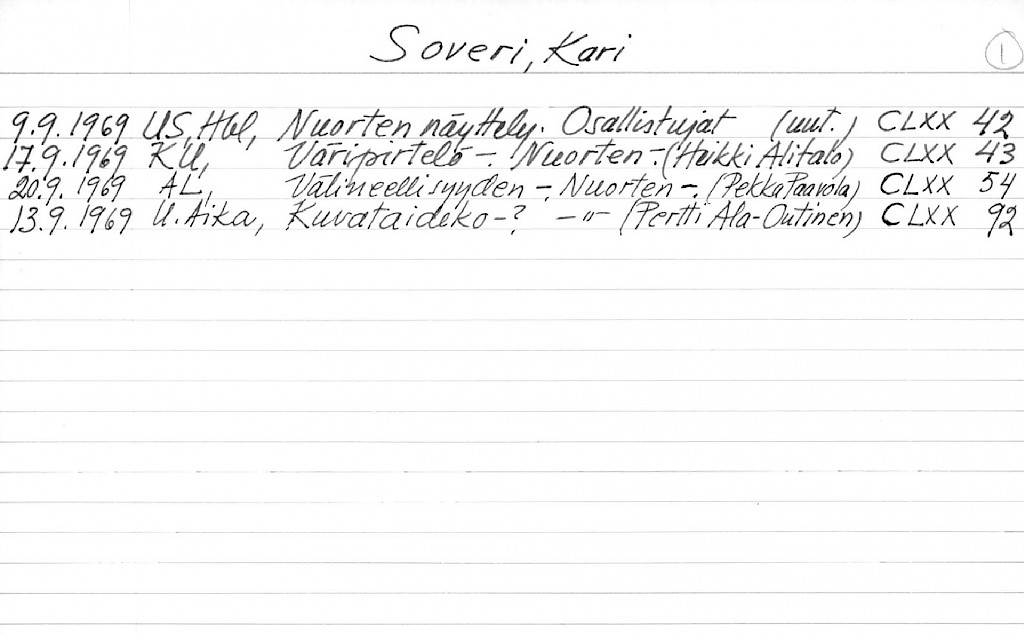 Soveri, Kari
1
9.9.1969 US, Hbl, Nuorten näyttely. Osallistujat (uut.) CLXX 42
17.9.1969 KU, Väripirtelö -. Nuorten -. (Heikki Alitalo) CLXX 43
20.9.1969 AL, Välineellisyyden -. Nuorten -. (Pekka Paavola) CLXX 54
13.9.1969 U. Aika, Kuvataideko -? -"- (Pertti Ala-Outinen) CLXX 92